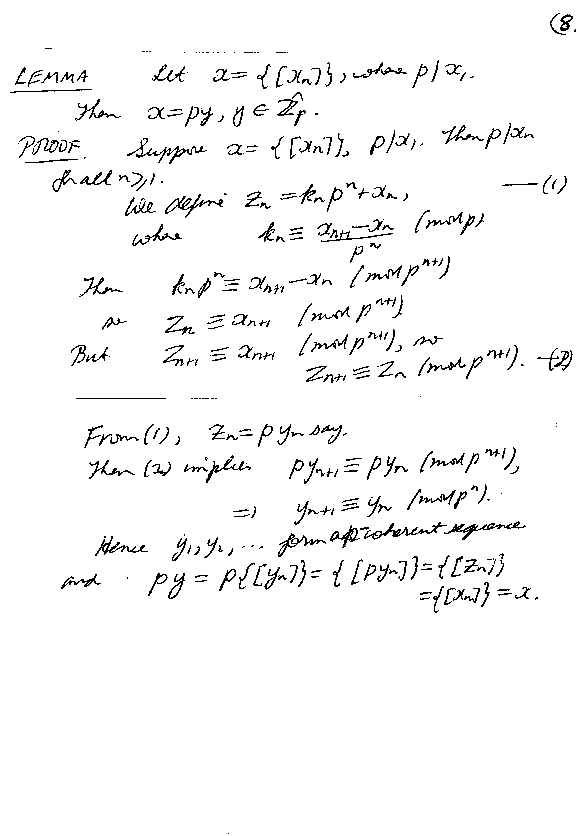 (8.
LEMMA Let x = {[xₙ]}, where p | x₁.
Then x = py, y ∈ Ẑₚ.
PROOF. Suppose x = {[xₙ]}, p | x₁. Then p | xₙ
for all n ≥ 1.
We define zₙ = kₙpⁿ + xₙ, —(1)
where kₙ ≡ (xₙ₊₁ − xₙ)/pⁿ (mod p)
Then kₙpⁿ ≡ xₙ₊₁ − xₙ (mod pⁿ⁺¹)
so zₙ ≡ xₙ₊₁ (mod pⁿ⁺¹)
But zₙ₊₁ ≡ xₙ₊₁ (mod pⁿ⁺¹), so
zₙ₊₁ ≡ zₙ (mod pⁿ⁺¹). —(2)
From (1), zₙ = pyₙ say.
Then (2) implies pyₙ₊₁ ≡ pyₙ (mod pⁿ⁺¹),
⇒ yₙ₊₁ ≡ yₙ (mod pⁿ).
Hence y₁, y₂, ... form a p-coherent sequence
and py = p{[yₙ]} = {[pyₙ]} = {[zₙ]}
= {[xₙ]} = x.